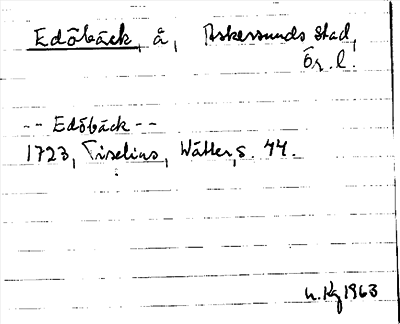 Edöbäck, å, Askersunds stad,
Ör. l.
-- Edöbäck --
1723, Tiselius, Wätter, s. 44.
n. Kg 1963